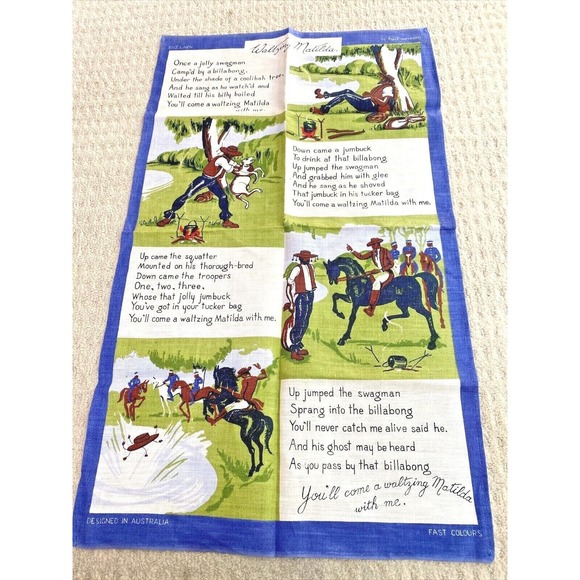 Waltzing Matilda.
Once a jolly swagman
Camp'd by a billabong,
Under the shade of a coolibah tree,
And he sang as he watch'd and
Waited till his billy boiled
You'll come a waltzing Matilda
with me.
Down came a jumbuck
To drink at that billabong
Up jumped the swagman
And grabbed him with glee
And he sang as he shoved
That jumbuck in his tucker bag
You'll come a waltzing Matilda with me.
Up came the squatter
Mounted on his thorough-bred
Down came the troopers
One, two, three,
Whose that jolly jumbuck
You've got in your tucker bag
You'll come a waltzing Matilda with me.
Up jumped the swagman
Sprang into the billabong
You'll never catch me alive said he.
And his ghost may be heard
As you pass by that billabong
You'll come a waltzing Matilda
with me.
DESIGNED IN AUSTRALIA
FAST COLOURS